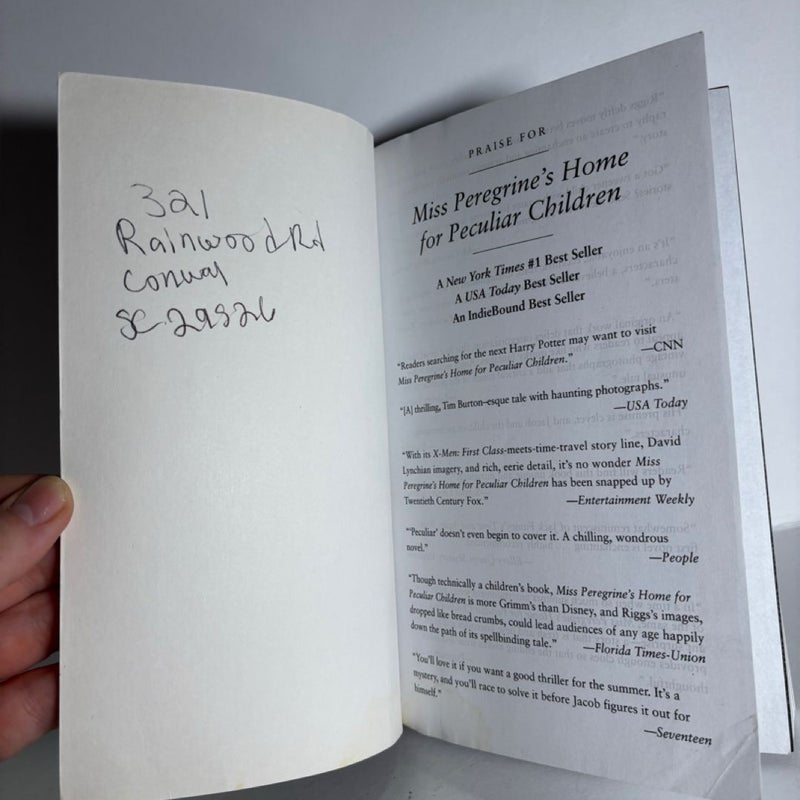 321
Rainwood Rd
Conway
SC 29526
PRAISE FOR
Miss Peregrine's Home
for Peculiar Children
A New York Times #1 Best Seller
A USA Today Best Seller
An IndieBound Best Seller
“Readers searching for the next Harry Potter may want to visit
Miss Peregrine's Home for Peculiar Children.” —CNN
“[A] thrilling, Tim Burton-esque tale with haunting photographs.”
—USA Today
“With its X-Men: First Class-meets-time-travel story line, David
Lynchian imagery, and rich, eerie detail, it's no wonder Miss
Peregrine's Home for Peculiar Children has been snapped up by
Twentieth Century Fox.” —Entertainment Weekly
“‘Peculiar’ doesn't even begin to cover it. A chilling, wondrous
novel.” —People
“Though technically a children's book, Miss Peregrine's Home for
Peculiar Children is more Grimm's than Disney, and Riggs's images,
dropped like bread crumbs, could lead audiences of any age happily
down the path of its spellbinding tale.” —Florida Times-Union
“You'll love it if you want a good thriller for the summer. It's a
mystery, and you'll race to solve it before Jacob figures it out for
himself.” —Seventeen